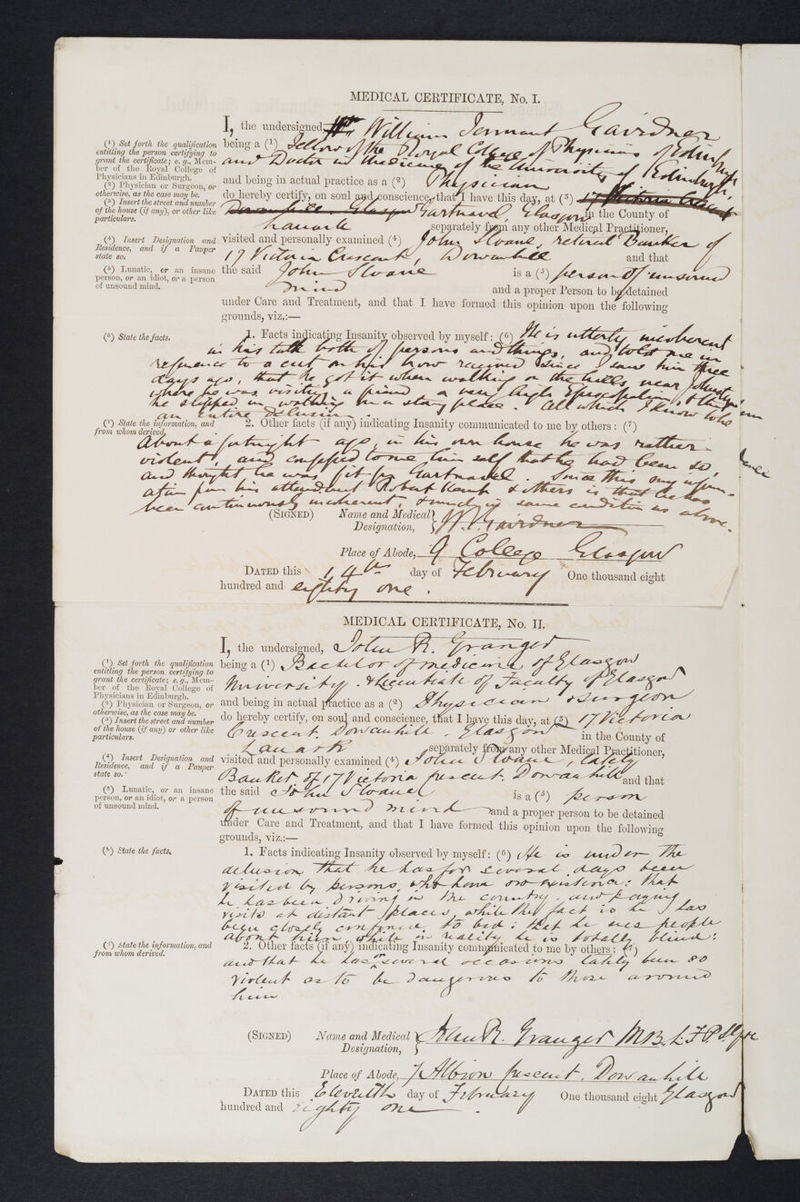 MEDICAL CERTIFICATE, No. I.
I, the undersigned, William Tennant Gairdner
(¹) Set forth the qualification entitling the person certifying to grant the certificate; e. g., Member of the Royal College of Physicians in Edinburgh.
being a (¹) Fellow of the Royal College of Physicians of Edinburgh
and Doctor in Medicine of the University of Edinburgh,
(²) Physician or Surgeon, or otherwise, as the case may be.
and being in actual practice as a (²) Physician
(³) Insert the street and number of the house (if any), or other like particulars.
do hereby certify, on soul and conscience, that I have this day, at (³) 17 Victoria Crescent
Dowanhill Glasgow Gartnavel, Glasgow in the County of
Lanark separately from any other Medical Practitioner,
(⁴) Insert Designation and Residence, and if a Pauper state so.
visited and personally examined (⁴) John Sloane, retired Banker of
17 Victoria Crescent, Dowanhill and that
(⁵) Lunatic, or an insane person, or an idiot, or a person of unsound mind.
the said John Sloane is a (⁵) person of unsound
mind and a proper Person to be detained
under Care and Treatment, and that I have formed this opinion upon the following
grounds, viz.:—
(⁶) State the facts.
1. Facts indicating Insanity observed by myself: (⁶) He is utterly incoherent
in his talk both of persons and things, and told me in
reference to a cut on his brow received since I saw him three
days ago, that he got it when walking on the hills, near
where he was visiting a friend, a very high Episcopalian, & that
he slipped in walking in a place. All which I know to be
an entire delusion.
(⁷) State the information, and from whom derived.
2. Other facts (if any) indicating Insanity communicated to me by others: (⁷)
About a fortnight ago, in his own house he was rather
violent, and confessed to me himself that he had been so,
and thought he was fit for Gartnavel. Since this my
from his attendant Robert & others is that he has
been continuously incoherent, & much in same condition as above.
(SIGNED) Name and Medical Designation, W. T. Gairdner
Place of Abode, 9 College Glasgow
DATED this 14th day of February One thousand eight
hundred and eighty one.
MEDICAL CERTIFICATE, No. II.
I, the undersigned, John R. Granger
(¹) Set forth the qualification entitling the person certifying to grant the certificate; e. g., Member of the Royal College of Physicians in Edinburgh.
being a (¹) Bachelor of medicine of Glasgow
University & Licentiate of Faculty of Glasgow
(²) Physician or Surgeon, or otherwise, as the case may be.
and being in actual practice as a (²) Physician & Surgeon
(³) Insert the street and number of the house (if any) or other like particulars.
do hereby certify, on soul and conscience, that I have this day, at (³) 17 Victoria
Crescent. Dowanhill. Glasgow in the County of
Lanark separately from any other Medical Practitioner,
(⁴) Insert Designation and Residence, and if a Pauper state so.
visited and personally examined (⁴) John Sloane, lately
Banker of 17 Victoria Crescent. Dowanhill and that
(⁵) Lunatic, or an insane person, or an idiot, or a person of unsound mind.
the said John Sloane is a (⁵) person
of unsound mind and a proper person to be detained
under Care and Treatment, and that I have formed this opinion upon the following
grounds, viz.:—
(⁶) State the facts.
1. Facts indicating Insanity observed by myself: (⁶) He is under the
delusion that he has for several days been
visited by persons who have no existence: that
he has been driving in the country, and paying
visits at distant places, while the fact is he has
been closely confined to bed: that he sees people
about him while in reality he is totally blind:
(⁷) State the information, and from whom derived.
2. Other facts (if any) indicating Insanity communicated to me by others: (⁷)
and that he has on several occasions lately been so
violent as to be dangerous to those around
him
(SIGNED) Name and Medical Designation, John R. Granger M.B. L.F.P.S.
Place of Abode, 7 Albion Crescent. Dowanhill
Glasgow
DATED this Eleventh day of February One thousand eight
hundred and eighty one.